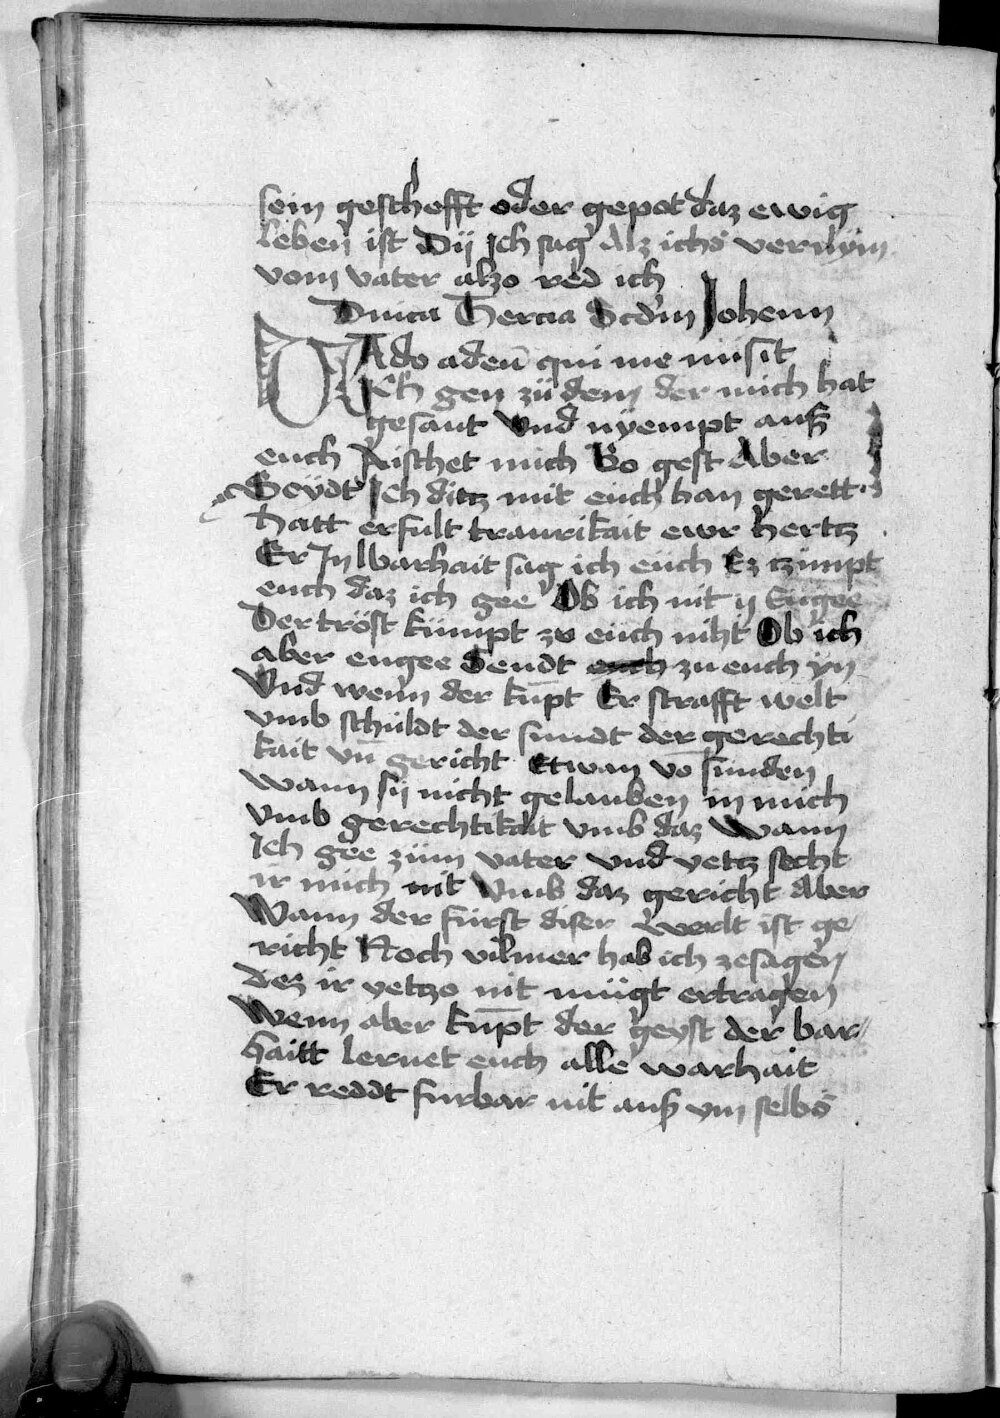 sein geschefft oder gepot daz ewig
leben ist Dÿ ich sag Alz ichs vernÿm
vom vater alzo red ich
Dnica Tercia Scdm Johenn
VAdo ad eū qui me misit
Ich gen zü dem der mich hat
gesant Vnd nÿempt auß
euch frischet mich Wo gest Aber
Seÿdt Ich ditz mit eüch han gerett
hatt erfult traurikait ewr hertz
Er In warhait sag ich eüch Ez tzimpt
euch daz ich gee Ob ich nit engee
Der tröst kümpt zu eüch niht Ob ich
aber engee Sendt euch zu euch yn
Vnd wenn der kūpt Er strafft welt
vmb schuldt der sundt der gerechti
kait vn̄ gericht Etwan vō sunden
wann sÿ nicht gelauben in mich
Vmb gerechtikait vmb daz Wann
Ich gee züm vater vnd yetz secht
ir mich nit Vmb daz gericht Aber
Wann der fürst diser werlt ist ge
richt Noch vilmer hab ich zesagen
dez ir yetzo nit mügt ertragen
Wenn aber kūpt der geyst der bar
haitt lernet euch alle warhait
Er reddt furbar nit auß ym selbs